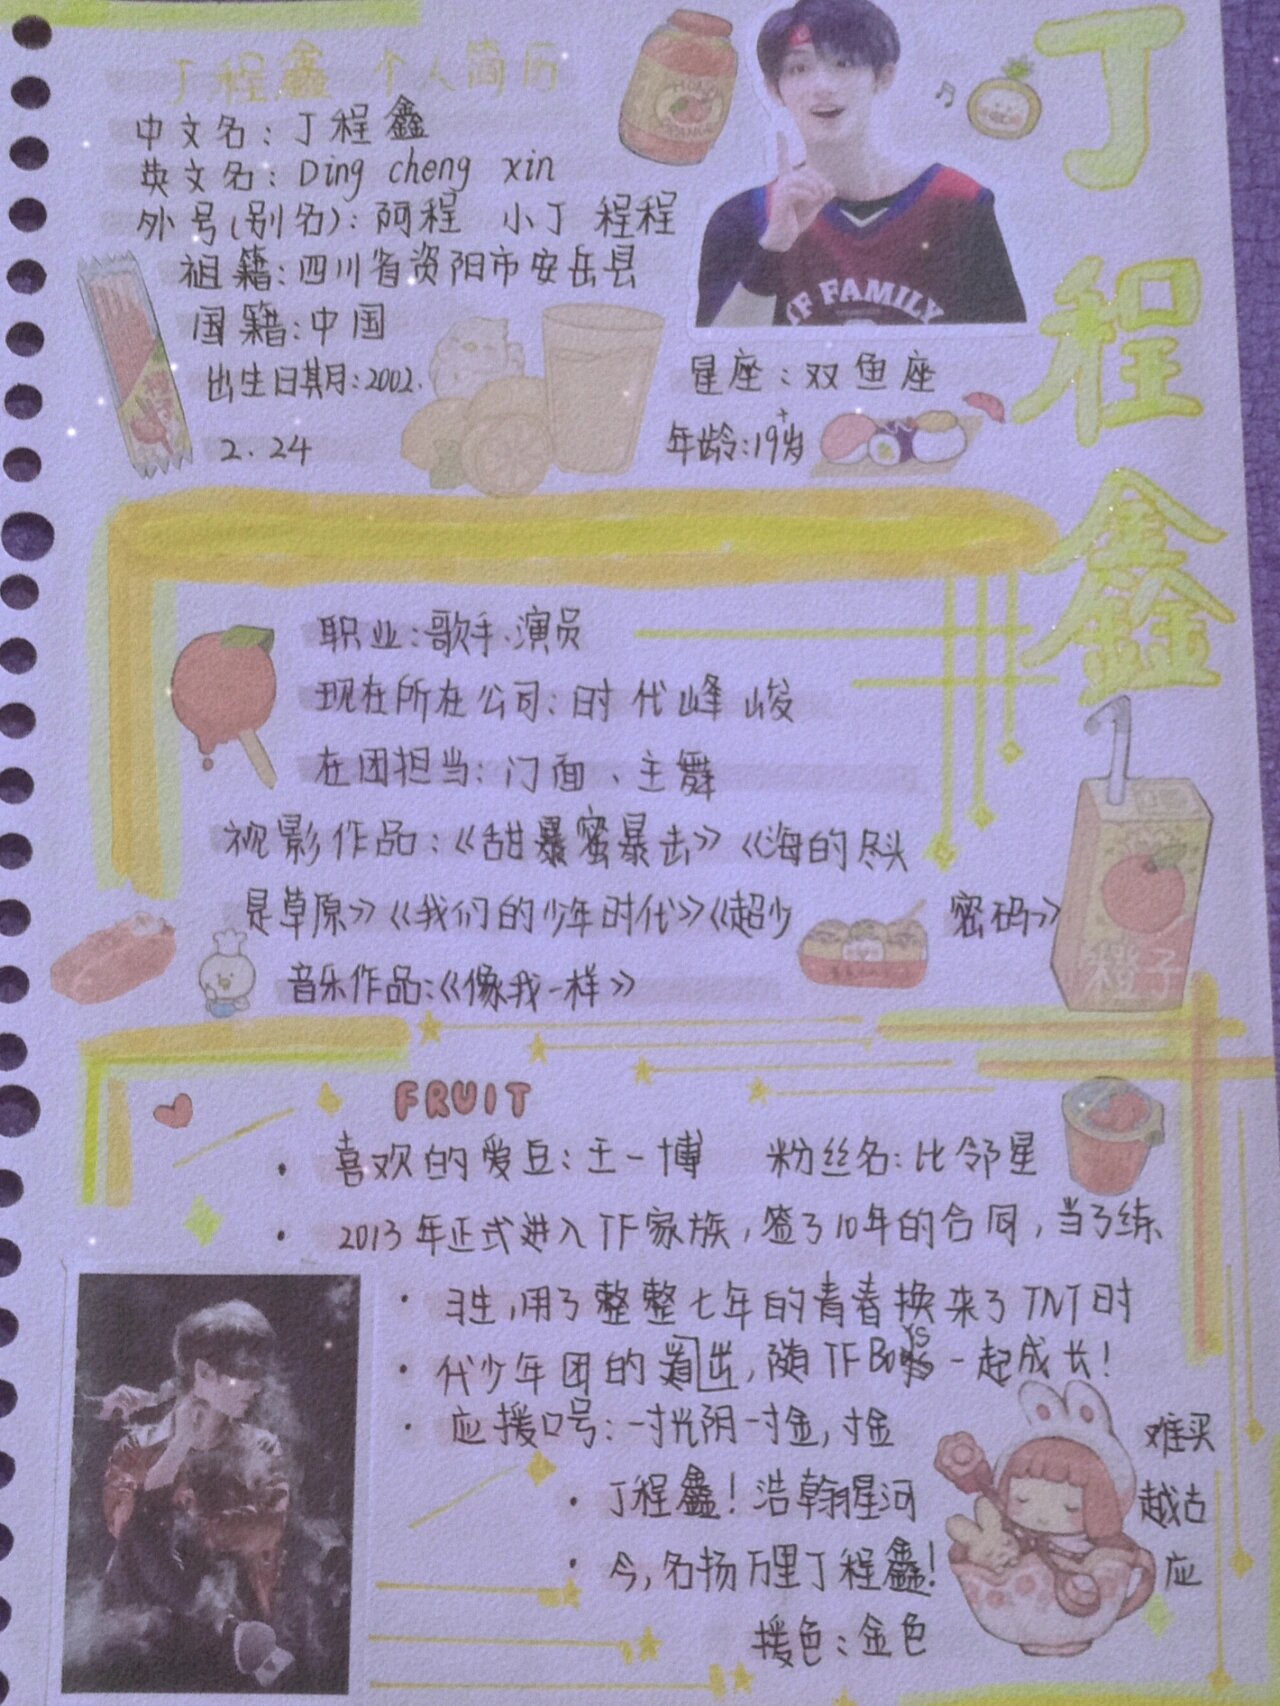 丁程鑫 个人简历
丁程鑫
中文名：丁程鑫
英文名：Ding cheng xin
外号(别名)：阿程 小丁 程程
祖籍：四川省资阳市安岳县
国籍：中国
出生日期：2002.
2.24
TF FAMILY
星座：双鱼座
年龄：19+岁
职业：歌手、演员
现在所在公司：时代峰峻
在团担当：门面、主舞
视影作品：《甜暴蜜暴击》《海的尽头
是草原》《我们的少年时代》《超少 密码》
音乐作品：《像我一样》
橙子
FRUIT
· 喜欢的爱豆：王一博 粉丝名：比邻星
· 2013年正式进入TF家族，签了10年的合同，当了练
· 习生，用了整整七年的青春换来了TNT时
· 代少年团的道出，随TFBoys一起成长！
· 应援口号：一寸光阴一寸金，寸金 难买
· 丁程鑫！浩翰星河 越古
· 今，名扬万里丁程鑫！ 应
援色：金色